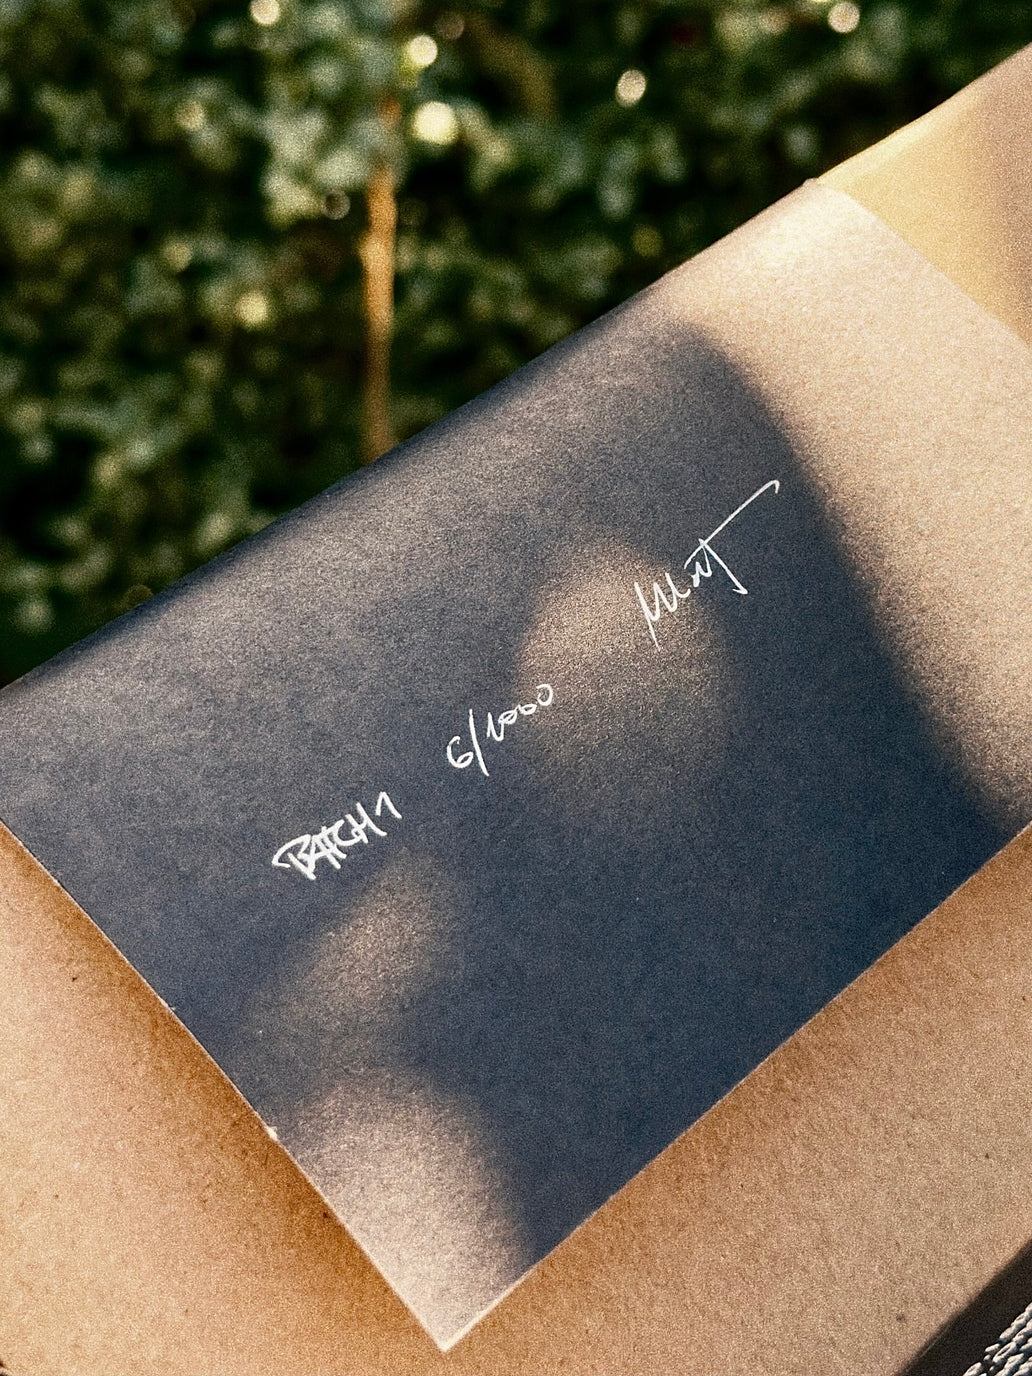 BATCH 1 6/1000 Matt